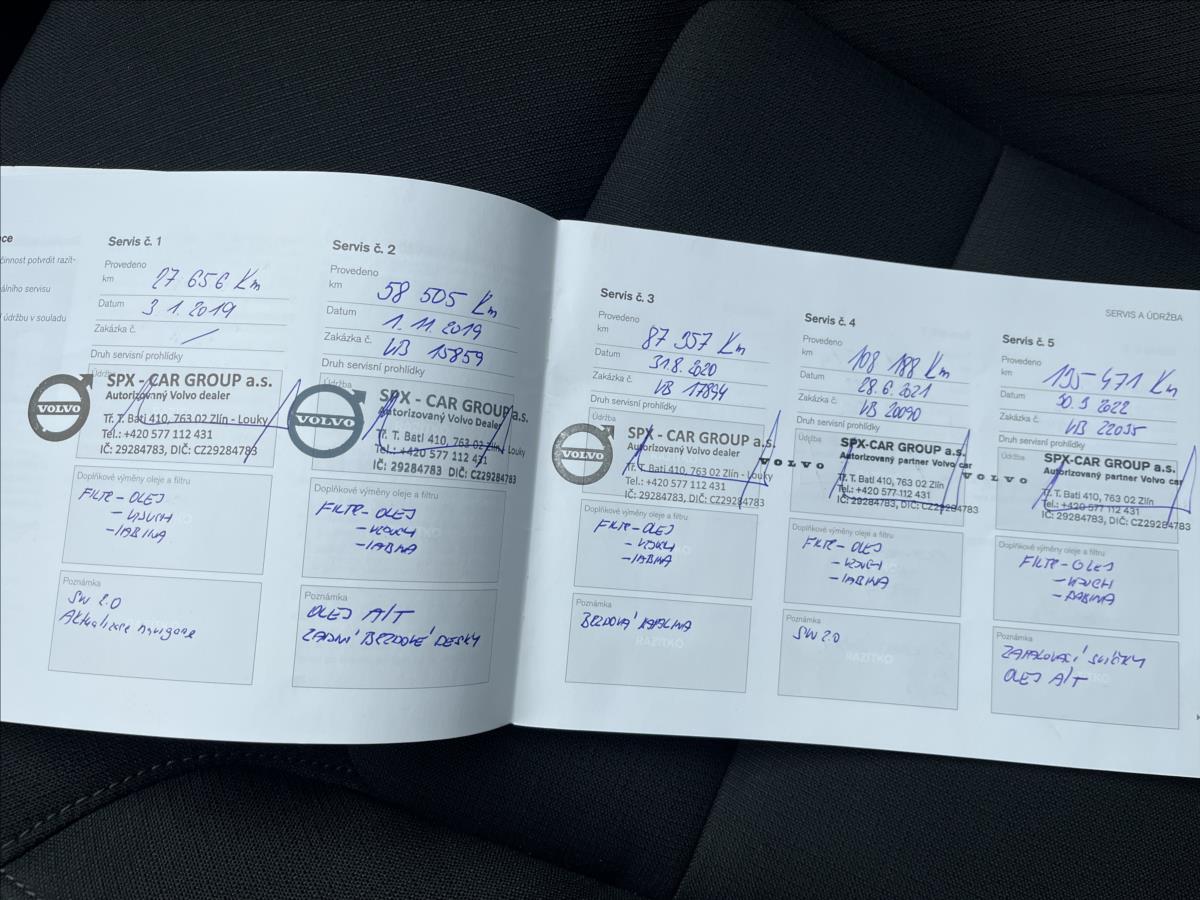 ce
činnost potvrdit razít-
álního servisu
údržbu v souladu
Servis č. 1
Provedeno
km 27 656 Km
Datum 3.1.2019
Zakázka č.
Druh servisní prohlídky
Údržba
VOLVO
SPX - CAR GROUP a.s.
Autorizovaný Volvo dealer
Tř. T. Bati 410, 763 02 Zlín - Louky
Tel.: +420 577 112 431
IČ: 29284783, DIČ: CZ29284783
Doplňkové výměny oleje a filtru
FILTR - OLEJ
- VZUCH
- KABINA
Poznámka
SW 2.0
Aktualizace navigace
Servis č. 2
Provedeno
km 58 505 Km
Datum 1.11.2019
Zakázka č. VB 15859
Druh servisní prohlídky
Údržba
VOLVO
SPX - CAR GROUP a.s.
Autorizovaný Volvo Dealer
Tř. T. Bati 410, 763 02 Zlín - Louky
Tel.: +420 577 112 431
IČ: 29284783 DIČ: CZ29284783
Doplňkové výměny oleje a filtru
FILTR - OLEJ
- VZUCH
- KABINA
Poznámka
OLEJ A/T
ZADNÍ BRZDOVÉ DESKY
SERVIS A ÚDRŽBA
Servis č. 3
Provedeno
km 87 357 Km
Datum 31.8.2020
Zakázka č. VB 17894
Druh servisní prohlídky
Údržba
VOLVO
SPX - CAR GROUP a.s.
Autorizovaný Volvo dealer
Tř. T. Bati 410, 763 02 Zlín - Louky
Tel.: +420 577 112 431
IČ: 29284783, DIČ: CZ29284783
Doplňkové výměny oleje a filtru
FILTR - OLEJ
- VZUCH
- KABINA
Poznámka
BRZDOVÁ KAPALINA
Servis č. 4
Provedeno
km 108 188 Km
Datum 28.6.2021
Zakázka č. VB 20090
Druh servisní prohlídky
Údržba
VOLVO
SPX-CAR GROUP a.s.
Autorizovaný partner Volvo car
Tř. T. Bati 410, 763 02 Zlín
Tel.: +420 577 112 431
IČ: 29284783, DIČ: CZ29284783
Doplňkové výměny oleje a filtru
FILTR - OLEJ
- VZUCH
- KABINA
Poznámka
SW 2.0
RAZÍTKO
Servis č. 5
Provedeno
km 135 471 Km
Datum 30.3.2022
Zakázka č. VB 22035
Druh servisní prohlídky
Údržba
VOLVO
SPX-CAR GROUP a.s.
Autorizovaný partner Volvo car
Tř. T. Bati 410, 763 02 Zlín
Tel.: +420 577 112 431
IČ: 29284783, DIČ: CZ29284783
Doplňkové výměny oleje a filtru
FILTR - OLEJ
- VZUCH
- KABINA
Poznámka
ZAPALOVACÍ SVÍČKY
OLEJ A/T